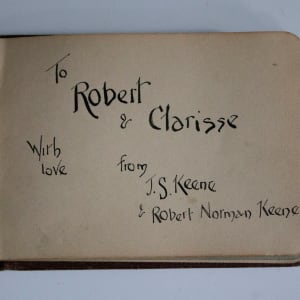 To
Robert
& Clarisse
With
love
from
J.S. Keene
& Robert Norman Keene